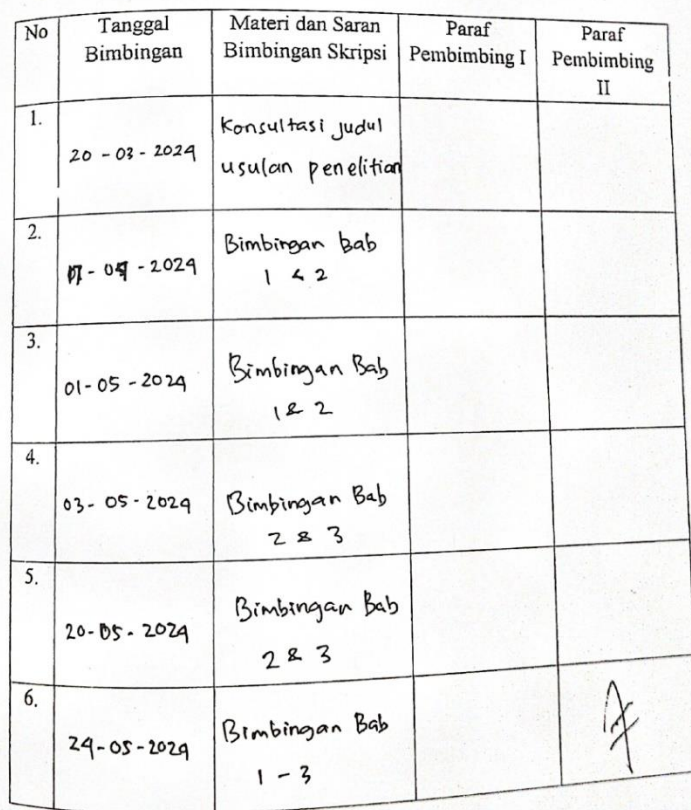 No
Tanggal
Bimbingan
Materi dan Saran
Bimbingan Skripsi
Paraf
Pembimbing I
Paraf
Pembimbing
II
1.
20 - 03 - 2024
Konsultasi judul
usulan penelitian
2.
- 2024
Bimbingan bab
1 & 2
3.
01 - 05 - 2024
Bimbingan Bab
1 & 2
4.
03 - 05 - 2024
Bimbingan Bab
2 & 3
5.
20 - 05 - 2024
Bimbingan Bab
2 & 3
6.
24 - 05 - 2024
Bimbingan Bab
1 - 3